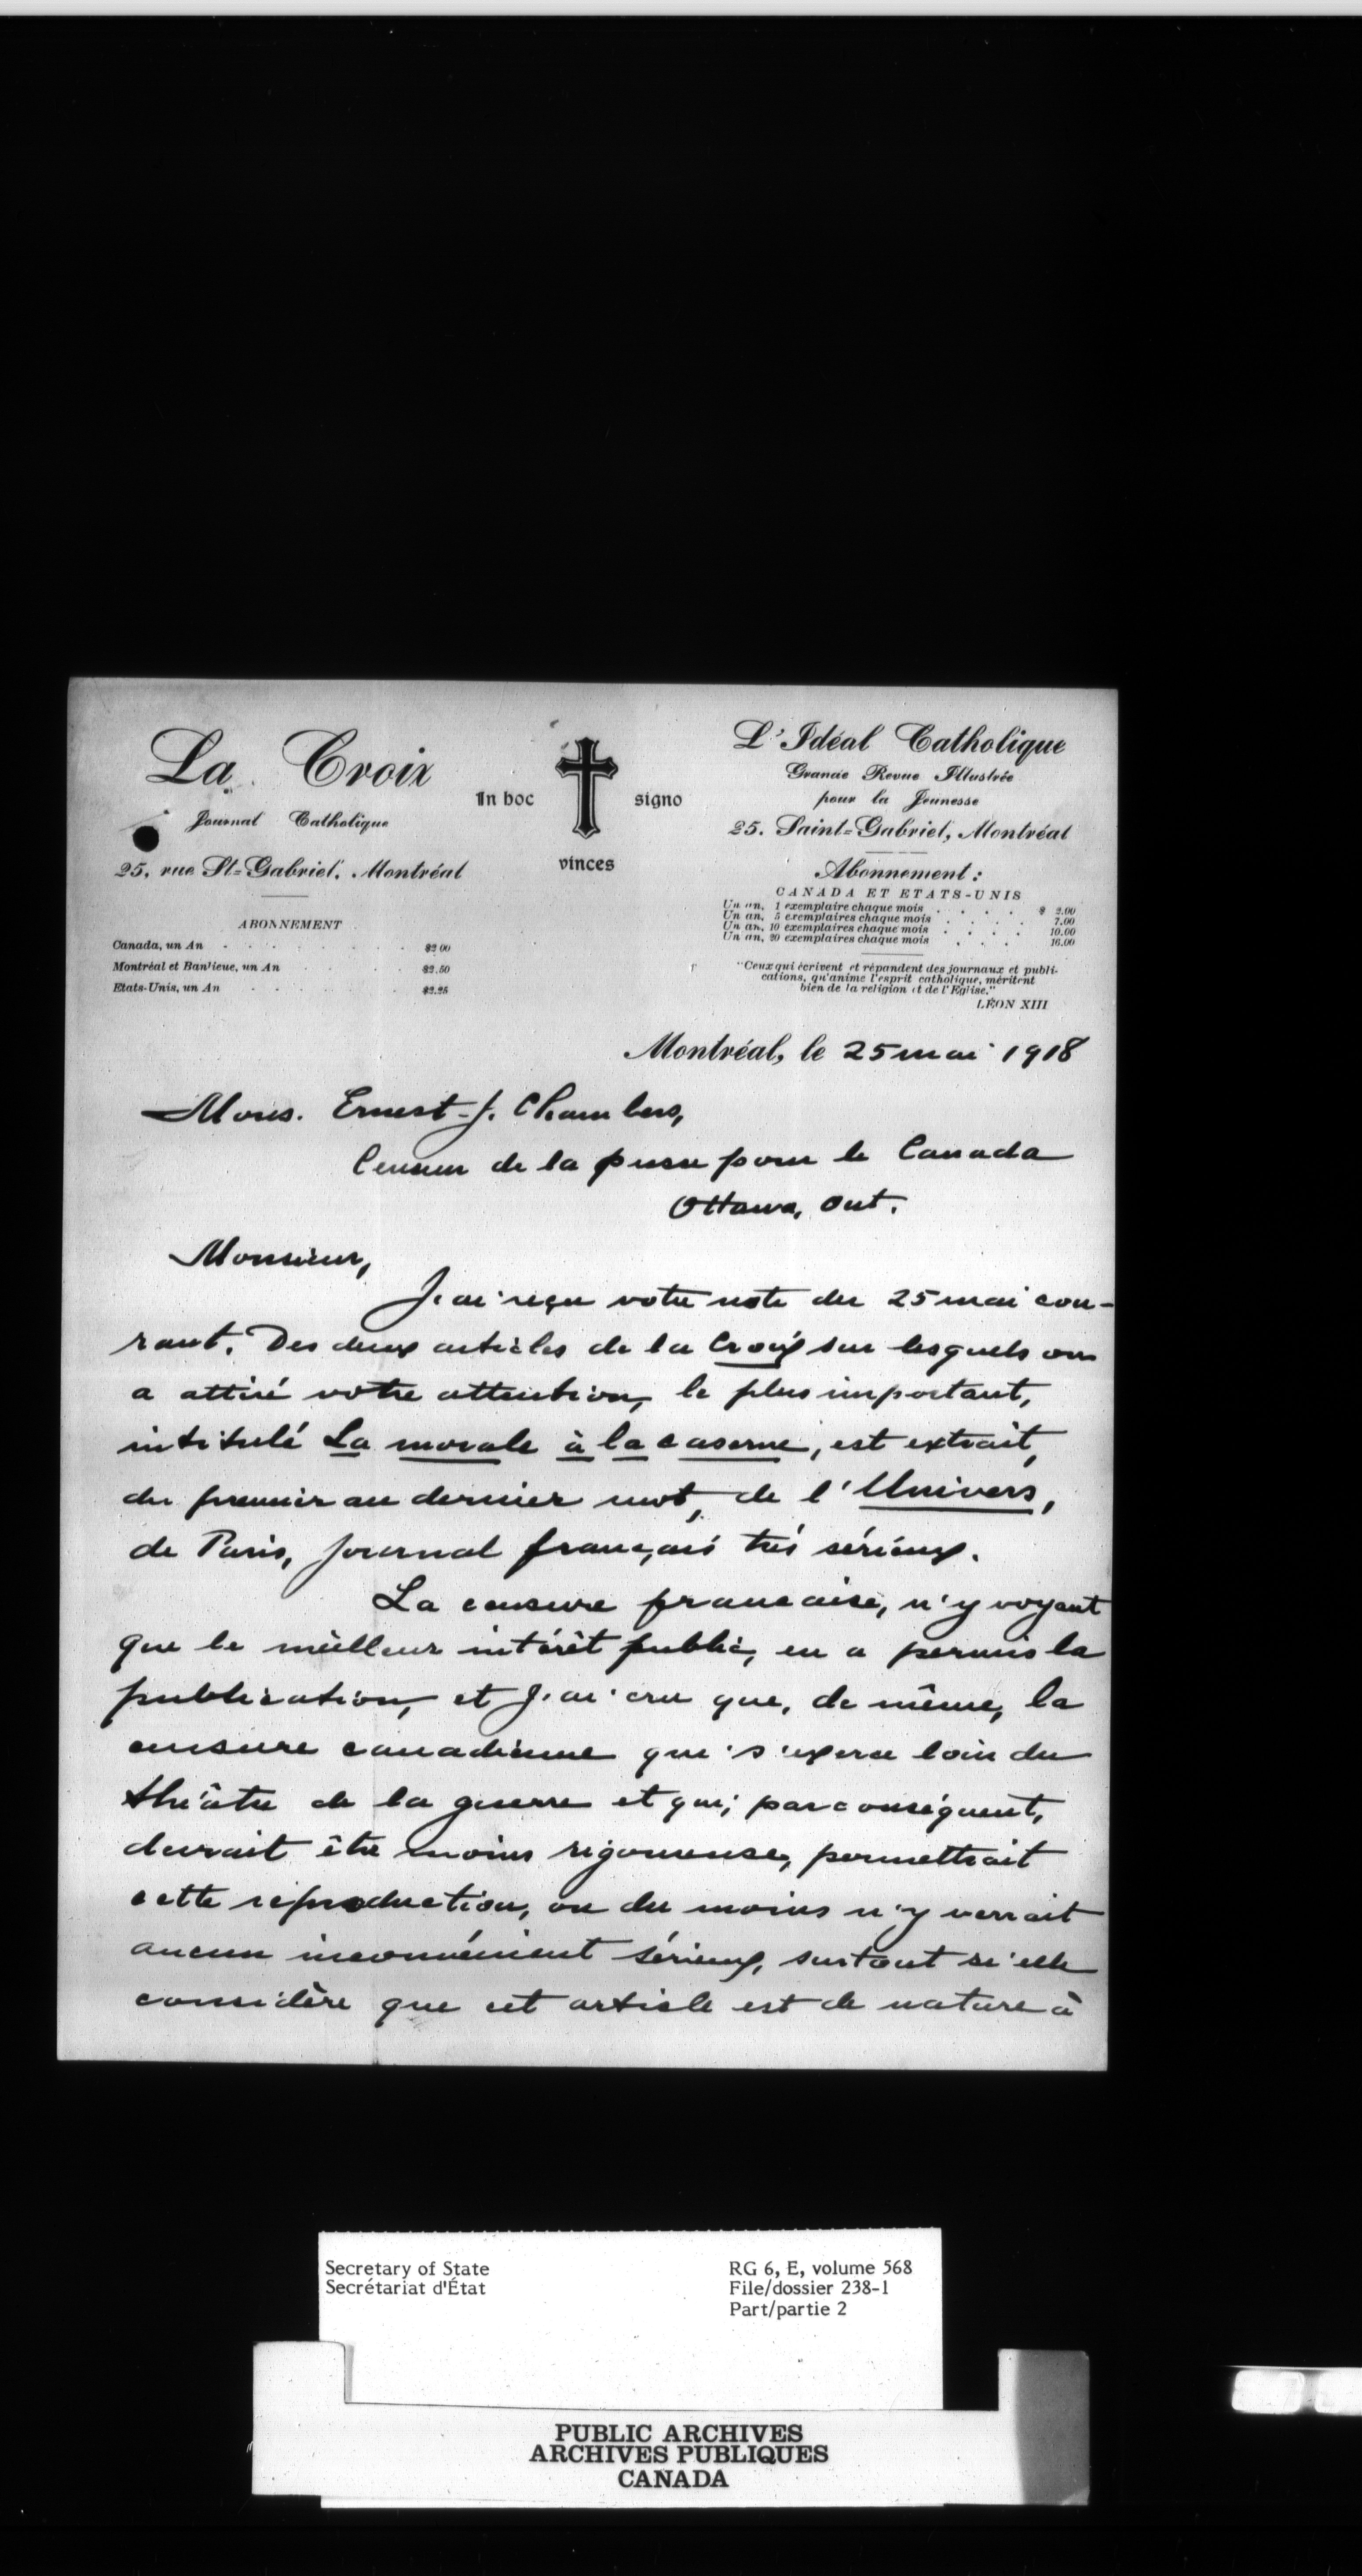 La Croix
Journal Catholique
25, rue St-Gabriel, Montréal
ABONNEMENT
Canada, un An $2.00
Montréal et Banlieue, un An $2.50
Etats-Unis, un An $2.25
In hoc signo
vinces
L'Idéal Catholique
Grande Revue Illustrée
pour la Jeunesse
25, Saint-Gabriel, Montréal
Abonnement:
CANADA ET ETATS-UNIS
Un an, 1 exemplaire chaque mois . . . . $ 2.00
Un an, 5 exemplaires chaque mois . . . . . 7.00
Un an, 10 exemplaires chaque mois . . . . . 10.00
Un an, 20 exemplaires chaque mois . . . . 16.00
"Ceux qui écrivent et répandent des journaux et publi-
cations, qu'anime l'esprit catholique, méritent
bien de la religion et de l'Eglise."
LÉON XIII
Montréal, le 25 mai 1918
Mons. Ernest-J. Chambers,
Censeur de la presse pour le Canada
Ottawa, Ont.
Monsieur,
J'ai reçu votre note du 25 mai cou-
rant. Des deux articles de la Croix sur lesquels on
a attiré votre attention, le plus important,
intitulé La morale à la caserne, est extrait,
du premier au dernier mot, de l'Univers,
de Paris, journal français très sérieux.
La censure française, n'y voyant
que le meilleur intérêt public, en a permis la
publication, et j'ai cru que, de même, la
censure canadienne qui s'exerce loin du
théâtre de la guerre et qui, par conséquent,
devrait être moins rigoureuse, permettrait
cette reproduction, ou du moins n'y verrait
aucun inconvénient sérieux, surtout si elle
considère que cet article est de nature à
Secretary of State
Secrétariat d'État
RG 6, E, volume 568
File/dossier 238-1
Part/partie 2
PUBLIC ARCHIVES
ARCHIVES PUBLIQUES
CANADA